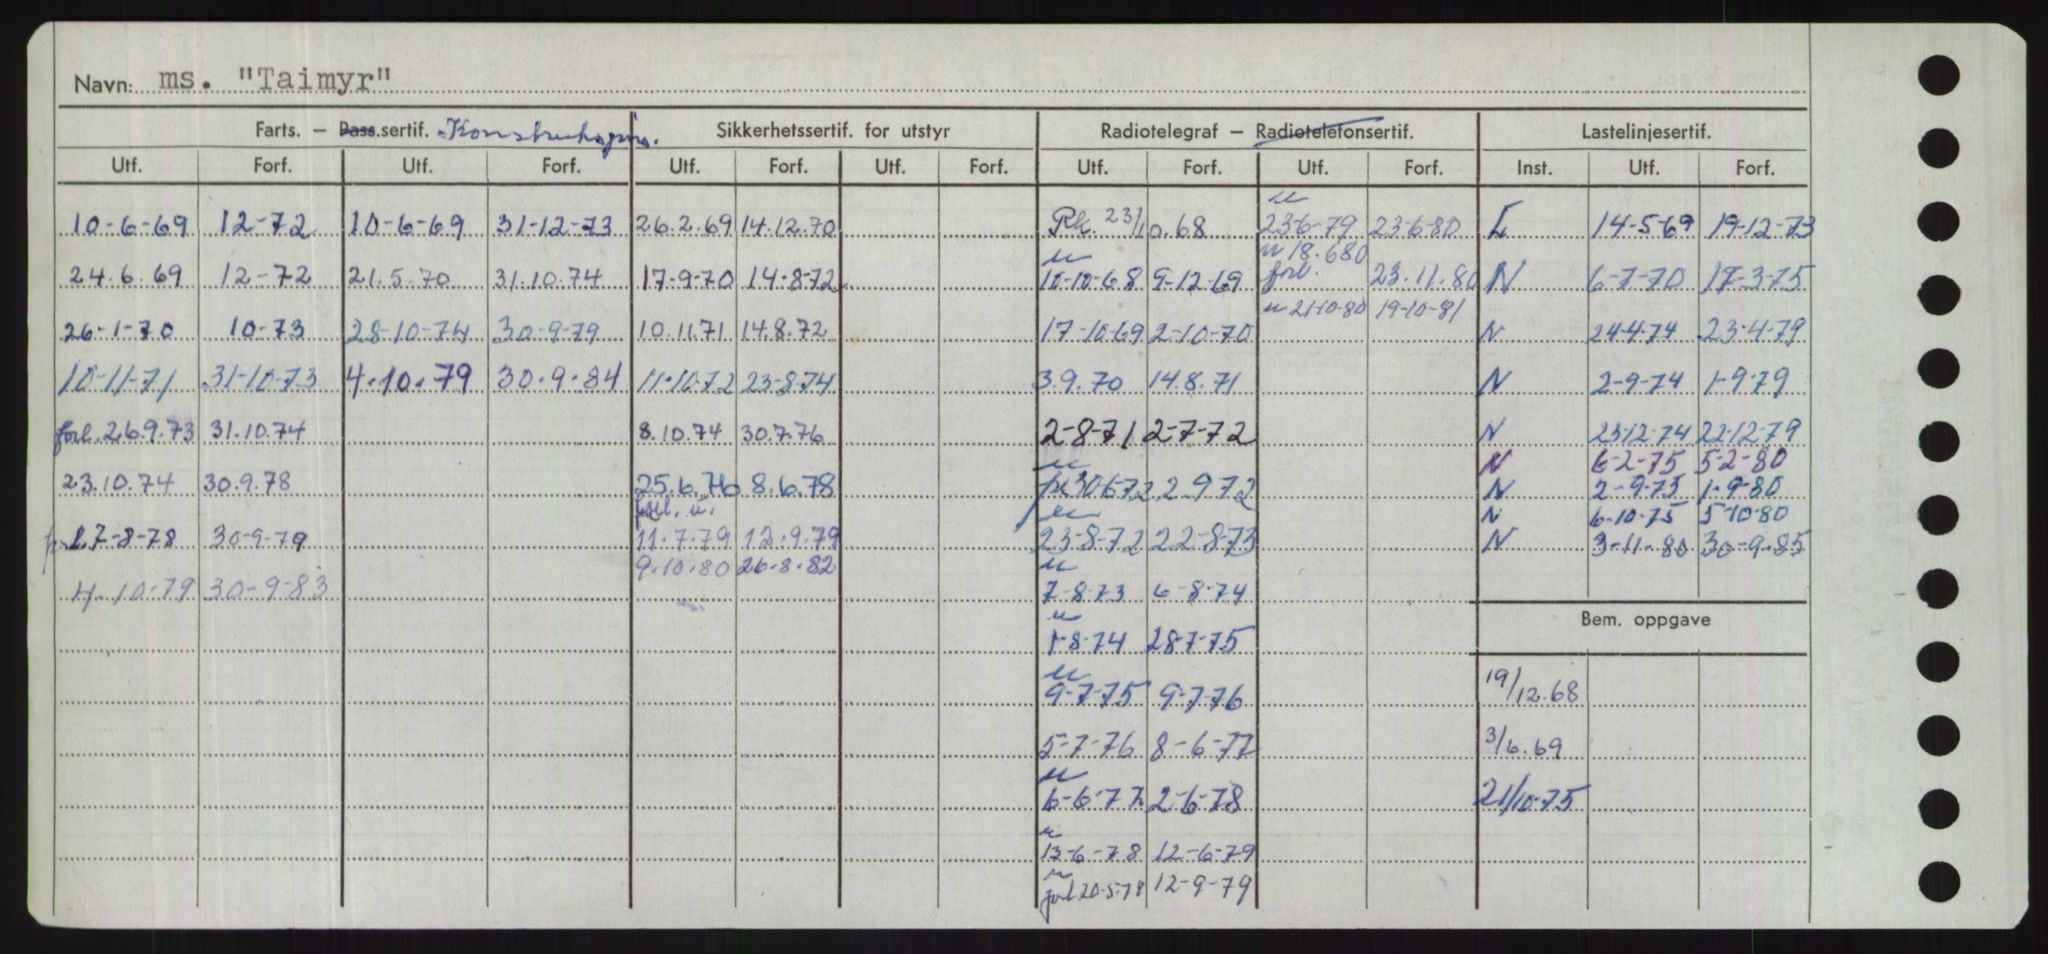 Navn: ms. "Taimyr"
Farts. — Pass.sertif. Konstruksjons. Sikkerhetssertif. for utstyr Radiotelegraf — Radiotelefonsertif. Lastelinjesertif.
Utf. Forf. Utf. Forf. Utf. Forf. Utf. Forf. Utf. Forf. Utf. Forf. Inst. Utf. Forf.
10-6-69 12-72 10-6-69 31-12-73 26.2.69 14.12.70 Rk. 23/10.68 u 23-6-79 23-6-80 L 14-5-69 19-12-73
u 18.6.80
24.6.69 12-72 21.5.70 31.10.74 17-9-70 14-8-72 u 10-10-68 9-12-69 forl. 23.11.80 N 6-7-70 17-3-75
u 21-10-80 19-10-81
26-1-70 10-73 28-10-74 30-9-79 10.11.71 14.8.72 17-10-69 2-10-70 N 24-4-74 23-4-79
10-11-71 31-10-73 4.10.79 30.9.84 11-10-72 23-8-74 3.9.70 14.8.71 N 2-9-74 1-9-79
forl. 26.9.73 31.10.74 8.10.74 30.7.76 2-8-71 2-7-72 N 23-12-74 22-12-79
N 6-2-75 5-2-80
23.10.74 30.9.78 25.6.76 8.6.78 u 30-6-72 2.9.72 N 2-9-75 1-9-80
forl. u. u N 6-10-75 5-10-80
7-8-78 30-9-79 11.7.79 12.9.79 23-8-72 22-8-73 N 3-11-80 30-9-85
9.10.80 26.8.82 u
4.10.79 30-9-83 7-8-73 6-8-74
u Bem. oppgave
1-8-74 28-7-75
u
9-7-75 9-7-76 19/12.68
5-7-76 8-6-77 3/6.69
u
6-6-77 2-6-78 21/10-75
u
13-6-78 12-6-79
u
forl 20-5-79 12-9-79